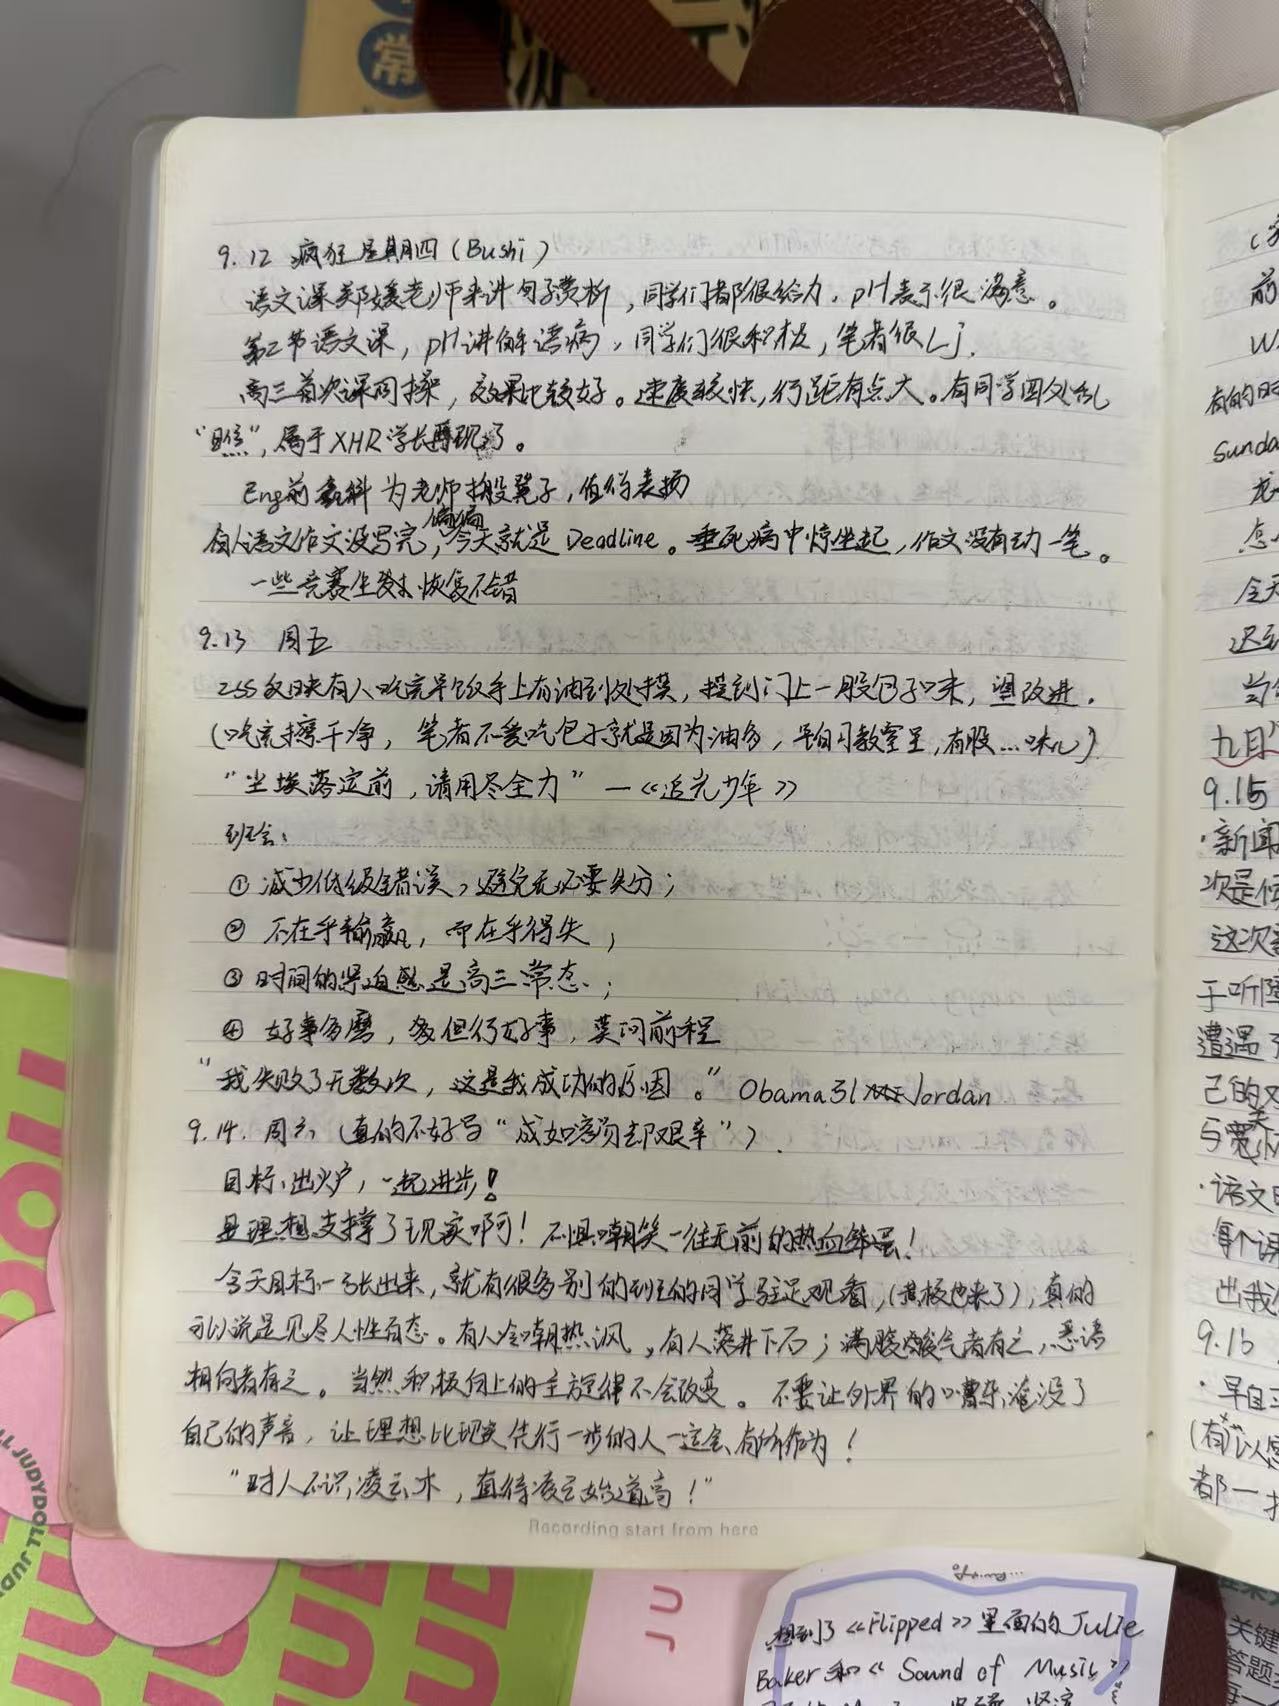 常
9.12 疯狂星期四（Bushi）
语文课郑媛老师来讲句子赏析，同学们都很给力，pH表示很满意。
第2节语文课，pH讲解语病，同学们很积极，笔者很Lj.
高三首次课间操，效果比较好。速度较快，行距有点大。有同学四处乱
“瞧”，属于XHR学长再现了。
Eng前 为老师搬凳子，值得表扬
偏偏
有人语文作文没写完，今天就是Deadline。垂死病中惊坐起，作文没有动一笔。
一些竞赛生 恢复不错
9.13 周五
ZSS反映有人吃完早饭手上有油到处摸，摸到门上一股包子味，望改进.
（吃完擦干净，笔者不爱吃包子就是因为油多，早自习教室里，有股…味儿）
“尘埃落定前，请用尽全力”—《追光少年》
班会：
① 减少低级错误，避免无必要失分；
② 不在乎输赢，而在乎得失；
③ 时间的紧迫感是高三常态；
④ 好事多磨，但行好事，莫问前程
“我失败了无数次，这是我成功的原因。”Obama引 Jordan
9.14. 周六（真的不好写“成如容易却艰辛”）.
目标出炉，一起进步！
是理想支撑了现实啊！不惧嘲笑一往无前的热血
今天目标一张出来，就有很多别的班的同学驻足观看，（黄板也来了），真的
可以说是见尽人性百态。有人冷嘲热讽，有人落井下石；满腹酸气者有之，恶语
相向者有之。当然积极向上的主旋律不会改变。不要让外界的嘈杂淹没了
自己的声音，让理想比现实先行一步的人一定会有所作为！
“时人不识凌云木，直待凌云始道高！”
Recording start from here
前
有的时
Sunda
今天
迟到
九月
9.15
·新闻
次是
这次
于听
遭遇
己的
与
·语文
每个课
出我
9.16
·早自
（有
都一
JUDYDOLL
想到了《Flipped》里面的Julie
Baker和《Sound of Music》
关键
答题